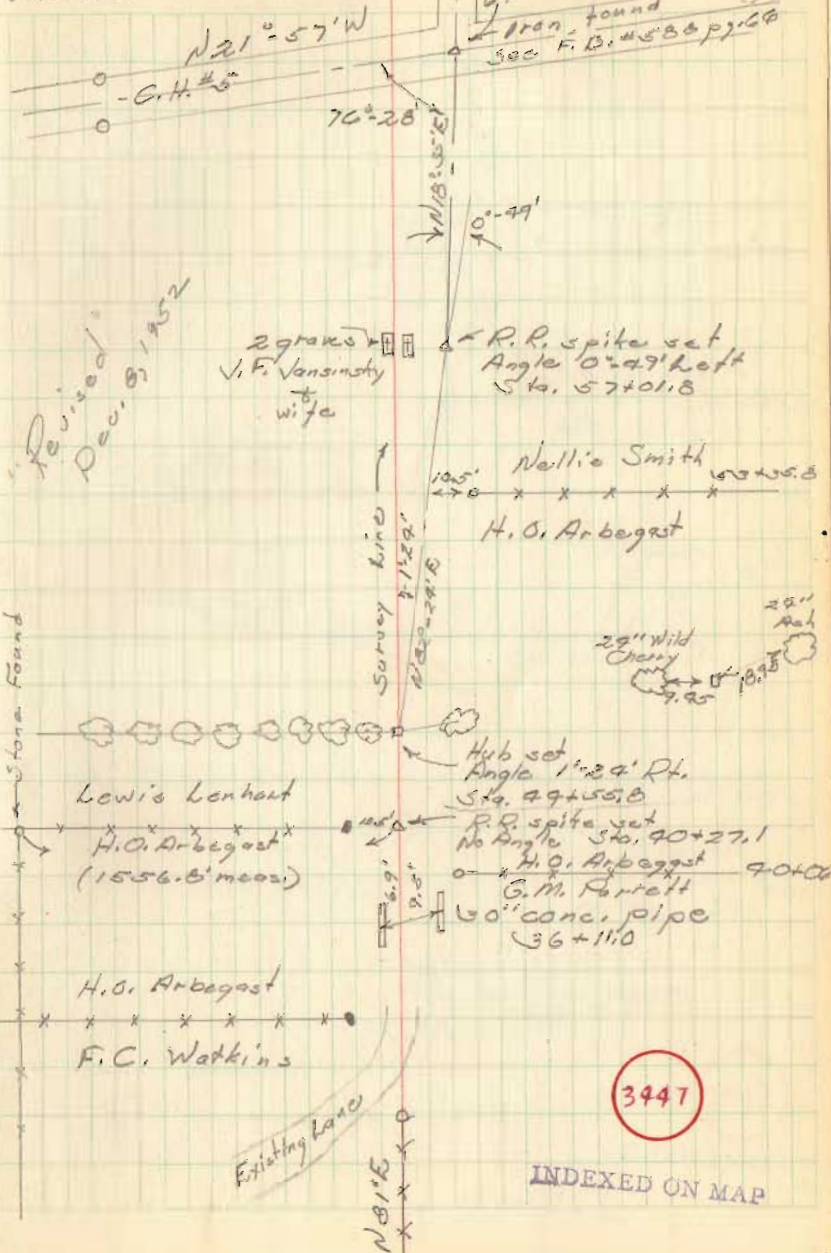 N21°-57'W
Iron found
See F.B. #588 pg. 68
-C.H. #5
76°-28'
N18°-35'E
0°-49'
Revised
Dec. 8, 1952
2 graves
V.F. Vansinsky
&
wife
R.R. spike set
Angle 0°-49' Left
Sta. 57+01.8
Nellie Smith 53+35.8
10.5'
H.O. Arbegast
Survey Line
1°-24'
N82°-24'E
24" Ash
24" Wild
Cherry
9.45
18.95
Stone Found
Hub set
Angle 1°-24' Rt.
Sta. 44+55.8
Lewis Lenhart
10.5'
R.R. spike set
No Angle Sta. 40+27.1
H.O. Arbegast
(1556.8' meas.)
H.O. Arbegast 40+06
G.M. Parrett
6.9'
30" conc. pipe
36+11.0
H.O. Arbegast
F.C. Watkins
Existing Lane
N81°E
3447
INDEXED ON MAP